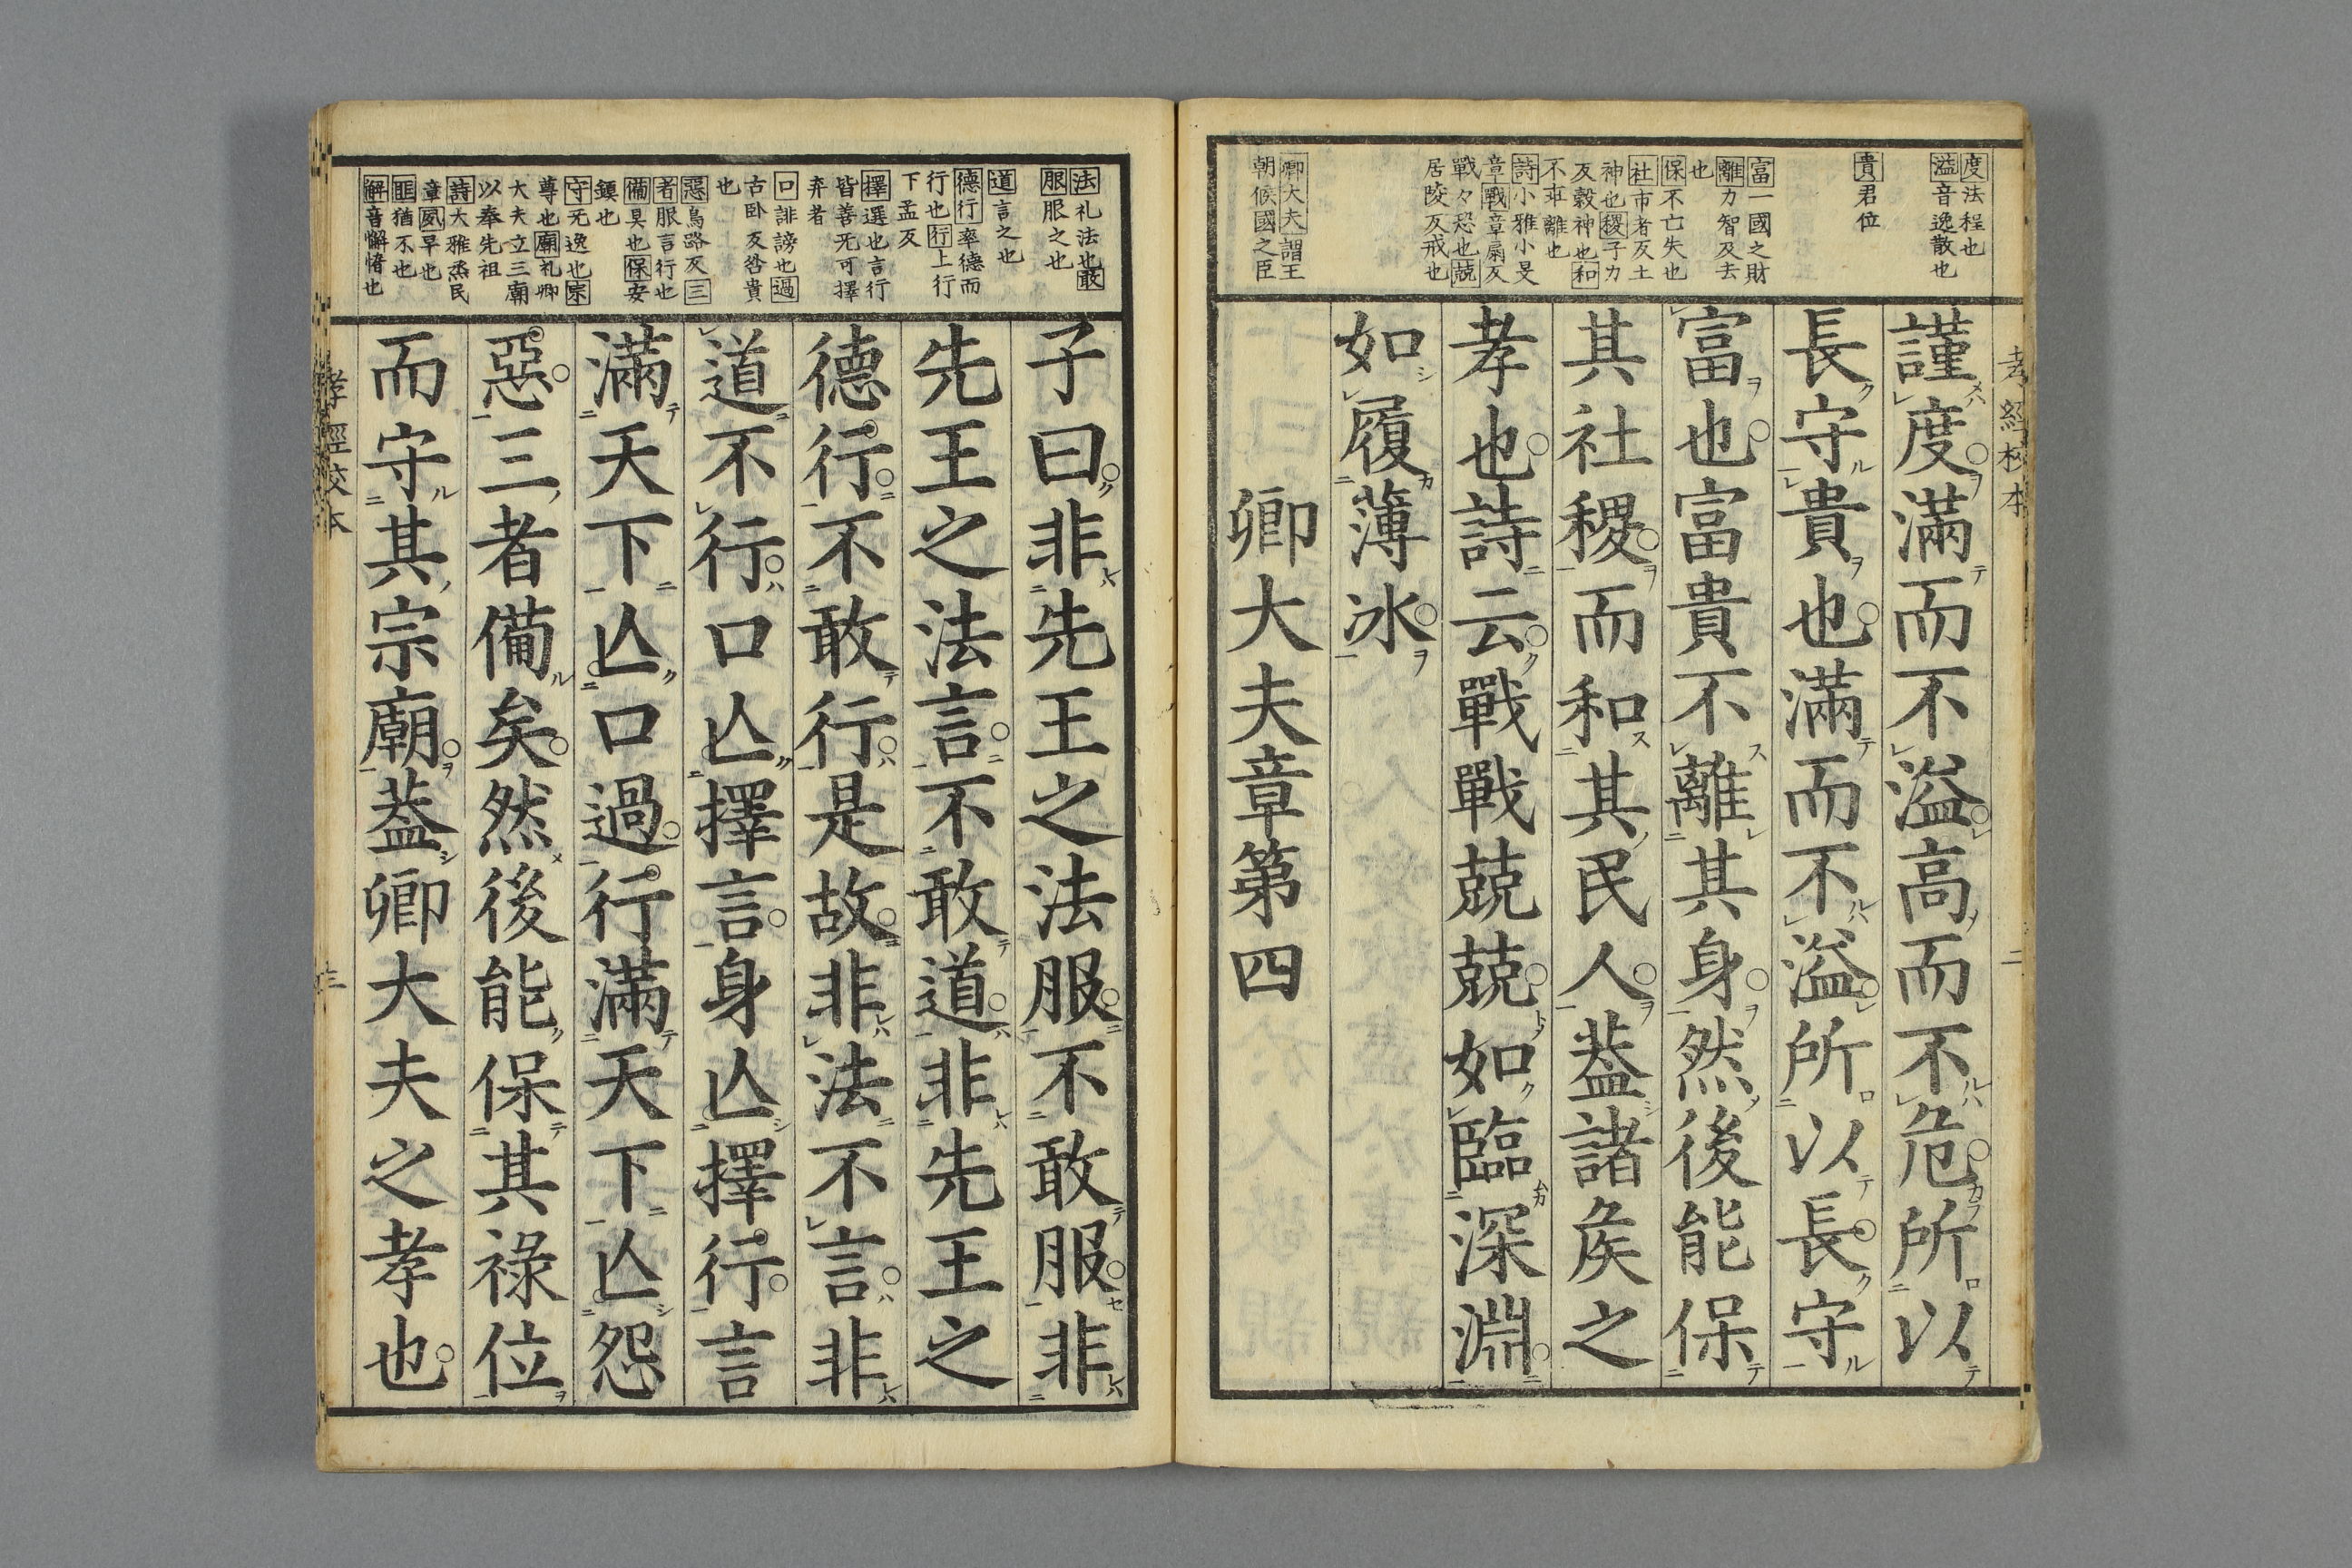 孝經校本
二
度法程也
溢音逸散也
貴君位
富一國之財
離力智反去
也
保不亡失也
社市者反土
神也稷子力
反穀神也和
不乖離也
詩小雅小旻
章戰章扇反
戰々恐也兢
居陵反戒也
卿大夫謂王
朝候國之臣
謹度滿而不溢高而不危所以
長守貴也滿而不溢所以長守
富也富貴不離其身然後能保
其社稷而和其民人葢諸矦之
孝也詩云戰戰兢兢如臨深淵
如履薄冰
卿大夫章第四
法礼法也敢
服服之也
道言之也
德行率德而
行也行上行
下孟反
擇選也言行
皆善无可擇
弃者
口誹謗也過
古卧反咎貴
也
惡烏路反三
者服言行也
備具也保安
鎮也
守无逸也宗
尊也廟礼卿
大夫立三廟
以奉先祖
詩大雅烝民
章夙早也
匪猶不也
解音懈惰也
子曰非先王之法服不敢服非
先王之法言不敢道非先王之
德行不敢行是故非法不言非
道不行口亾擇言身亾擇行言
滿天下亾口過行滿天下亾怨
惡三者備矣然後能保其祿位
而守其宗廟葢卿大夫之孝也
孝經校本
三